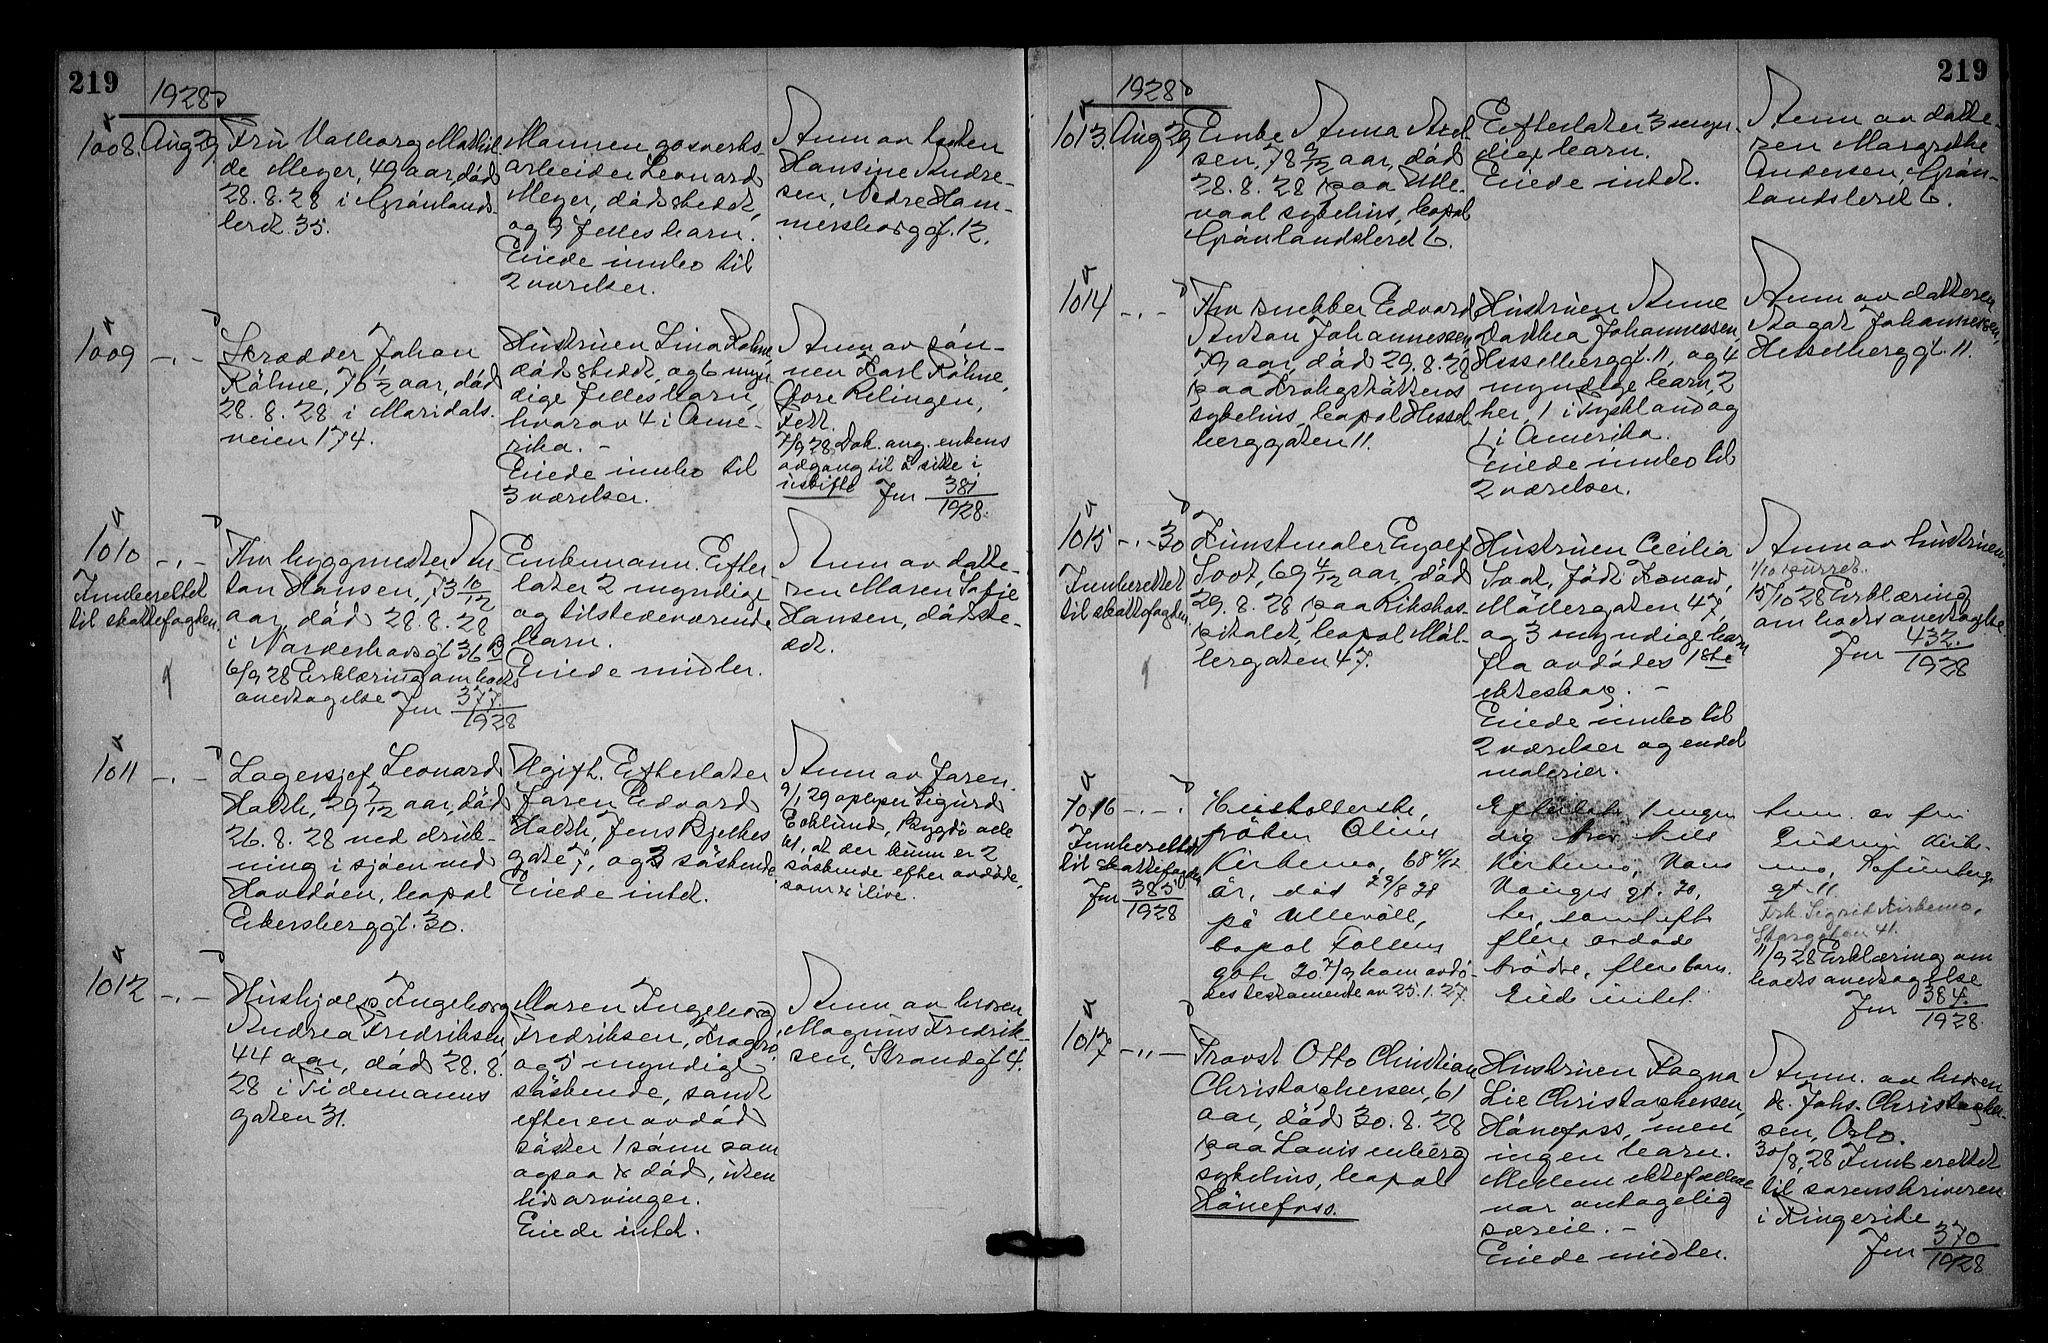 219
1928
1008. Aug 29.
Fru Valborg Mathil-
de Meyer, 49 aar, död
28. 8. 28 i Grönlands-
leret 35.
Mannen gasverks-
arbeider Leonard
Meyer, dödsstedet,
og 9 fellesbarn.
Eiede innbo til
2 værelser.
Anm av
Hansine Andre-
sen, Nedre Ham-
mersborg gt. 12.
1009 -"-
Skrædder Johan
Röhne, 76 1/2 aar, död
28. 8. 28 i Maridals-
veien 174.
Hustruen Lina Röhne
dödsstedet, og 6 myn-
dige fellesbarn,
hvorav 4 i Ame-
rika. -
Eiede innbo til
3 værelser.
Anm av sön-
nen Karl Röhne,
Övre Rælingen,
Fet.
7/9 28 Dok. ang. enkens
adgang til å sitte i
uskifte Jnr 381
1928.
1010 -"-
Innberettet
til skattefogden.
Fhv byggmester An-
ton Hansen, 73 10/12
aar, död 28. 8. 28
i Norderhovsgt 36 B
6/9 28 Erklæring om boets
overtagelse Jnr 377.
1928
Enkemann. Efter-
later 2 myndige
og tilstedeværende
barn.
Eiede midler.
Anm av datte-
ren Maren Sofie
Hansen, dödsste-
det.
1011 -"-
Lagersjef Leonard
29 7/12 aar, död
26. 8. 28 ved druk-
ning i sjöen ved
Hovedöen, bopal
Ekersberggt. 30.
Ugift. Efterlater
faren Edvard
Jens Bjelkes
gate 7, og 3 söskende.
Eiede intet.
Anm av faren.
9/1 29 oplyser Sigurd
Ecklund, Bygdö alle
at der kunn er 2
söskende efter avdöde,
som er i live.
1012 -"-
Hushjelp Ingeborg
Andrea Fredriksen,
44 aar, död 28. 8.
28 i Tidemanns
gaten 31.
Moren Ingeborg
Fredriksen, Kragerö,
og 5 myndige
söskende, samt
efter en avdöd
söster 1 sönn som
ogsaa er död, uten
livsarvinger.
Eiede intet.
Anm av broren
Magnus Fredrik-
sen, Strandgt 4.
219
1928
1013. Aug 29
Enke Anna
sen, 78 9/12 aar, död
28. 8. 28 paa Ulle-
vaal sykehus, bopal
Grönlandsleret 6.
Efterlater 3 myn-
dige barn.
Eiede intet.
Anm av datte-
ren Margrethe
Andersen, Grön-
landsleret 6.
1014 -"-
Fhv snekker Edvard
Anton Johannessen,
79 aar, död 29. 8. 28
paa Krohgstöttens
sykehus, bopal Hessel-
berggaten 11.
Hustruen Anne
Dorthea Johannessen,
Hesselberggt. 11, og 4
myndige barn, 2
her, 1 i Tyskland og
1 i Amerika.
Eiede innbo til
2 værelser.
Anm av datteren
Dagot Johannessen,
Hesselberggt. 11.
1015 -"- 30
Innberettet
til skattefogden.
Kunstmaler Eyolf
Soot, 69 4/12 aar, död
29. 8. 28 paa Rikshos-
pitalet, bopal Möl-
lergaten 47.
Hustruen Cecilia
Soot, född
Möllergaten 47,
og 3 myndige barn
fra avdödes 1ste
ekteskap. -
Eiede innbo til
2 værelser og endel
malerier.
Anm av hustruen.
1/10 purret.
15/10 28 Erklæring
om boets overtagelse
Jnr 432.
1928
1016 -"-
Innberettet
til skattefogden
Jnr 385
1928
Husholderske,
fröken Oline
Kirkemo, 68 4/12
år, död 29/8 28
på Ullevåll,
bopal Tollbu
gate 20. 7/9 kom avdö-
des testamente av 25.1.27.
Efterlater 1 myn
dig bror Nils
Kirkemo, Hans
Hauges gt. 20,
her, samt efter
flere avdöde
brödre, flere barn.
Eiede intet
Anm. av fru
Gudrun Kirke-
mo, Kofunberg
gt. 11
Frk. Sigrid Kirkemo,
Storgaten 41.
11/9 28 Erklæring om
boets overtagelse
Jnr 384.
1928.
1017 -"-
Provst Otto Christian
Christophersen, 61
aar, död 30. 8. 28
paa Lovisenberg
sykehus, bopal
Hönefoss.
Hustruen Ragna
Lie Christophersen,
Hönefoss, men
ingen barn.
Mellem ektefellene
var antagelig
særeie. -
Eiede midler.
Anm. av broren
dr. Johs. Christopher-
sen, Oslo.
30/8 28 Innberettet
til sorenskriveren
i Ringerike
Jnr 370
1928